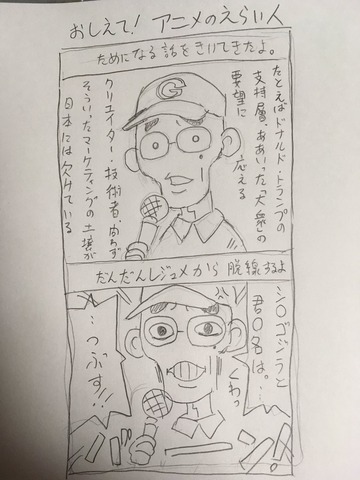 おしえて！ アニメのえらい人
ためになる話をきいてきたよ。
たとえばドナルド・トランプの
支持層、ああいった「大衆」の
要望に応える
G
クリエイター・技術者、向わず
そういったマーケティングの土壌が
日本には欠けている
だんだんレジュメから脱線するよ
シ〇ゴジラと
君〇名は。…
くわっ
…つぶす!!
バーン!